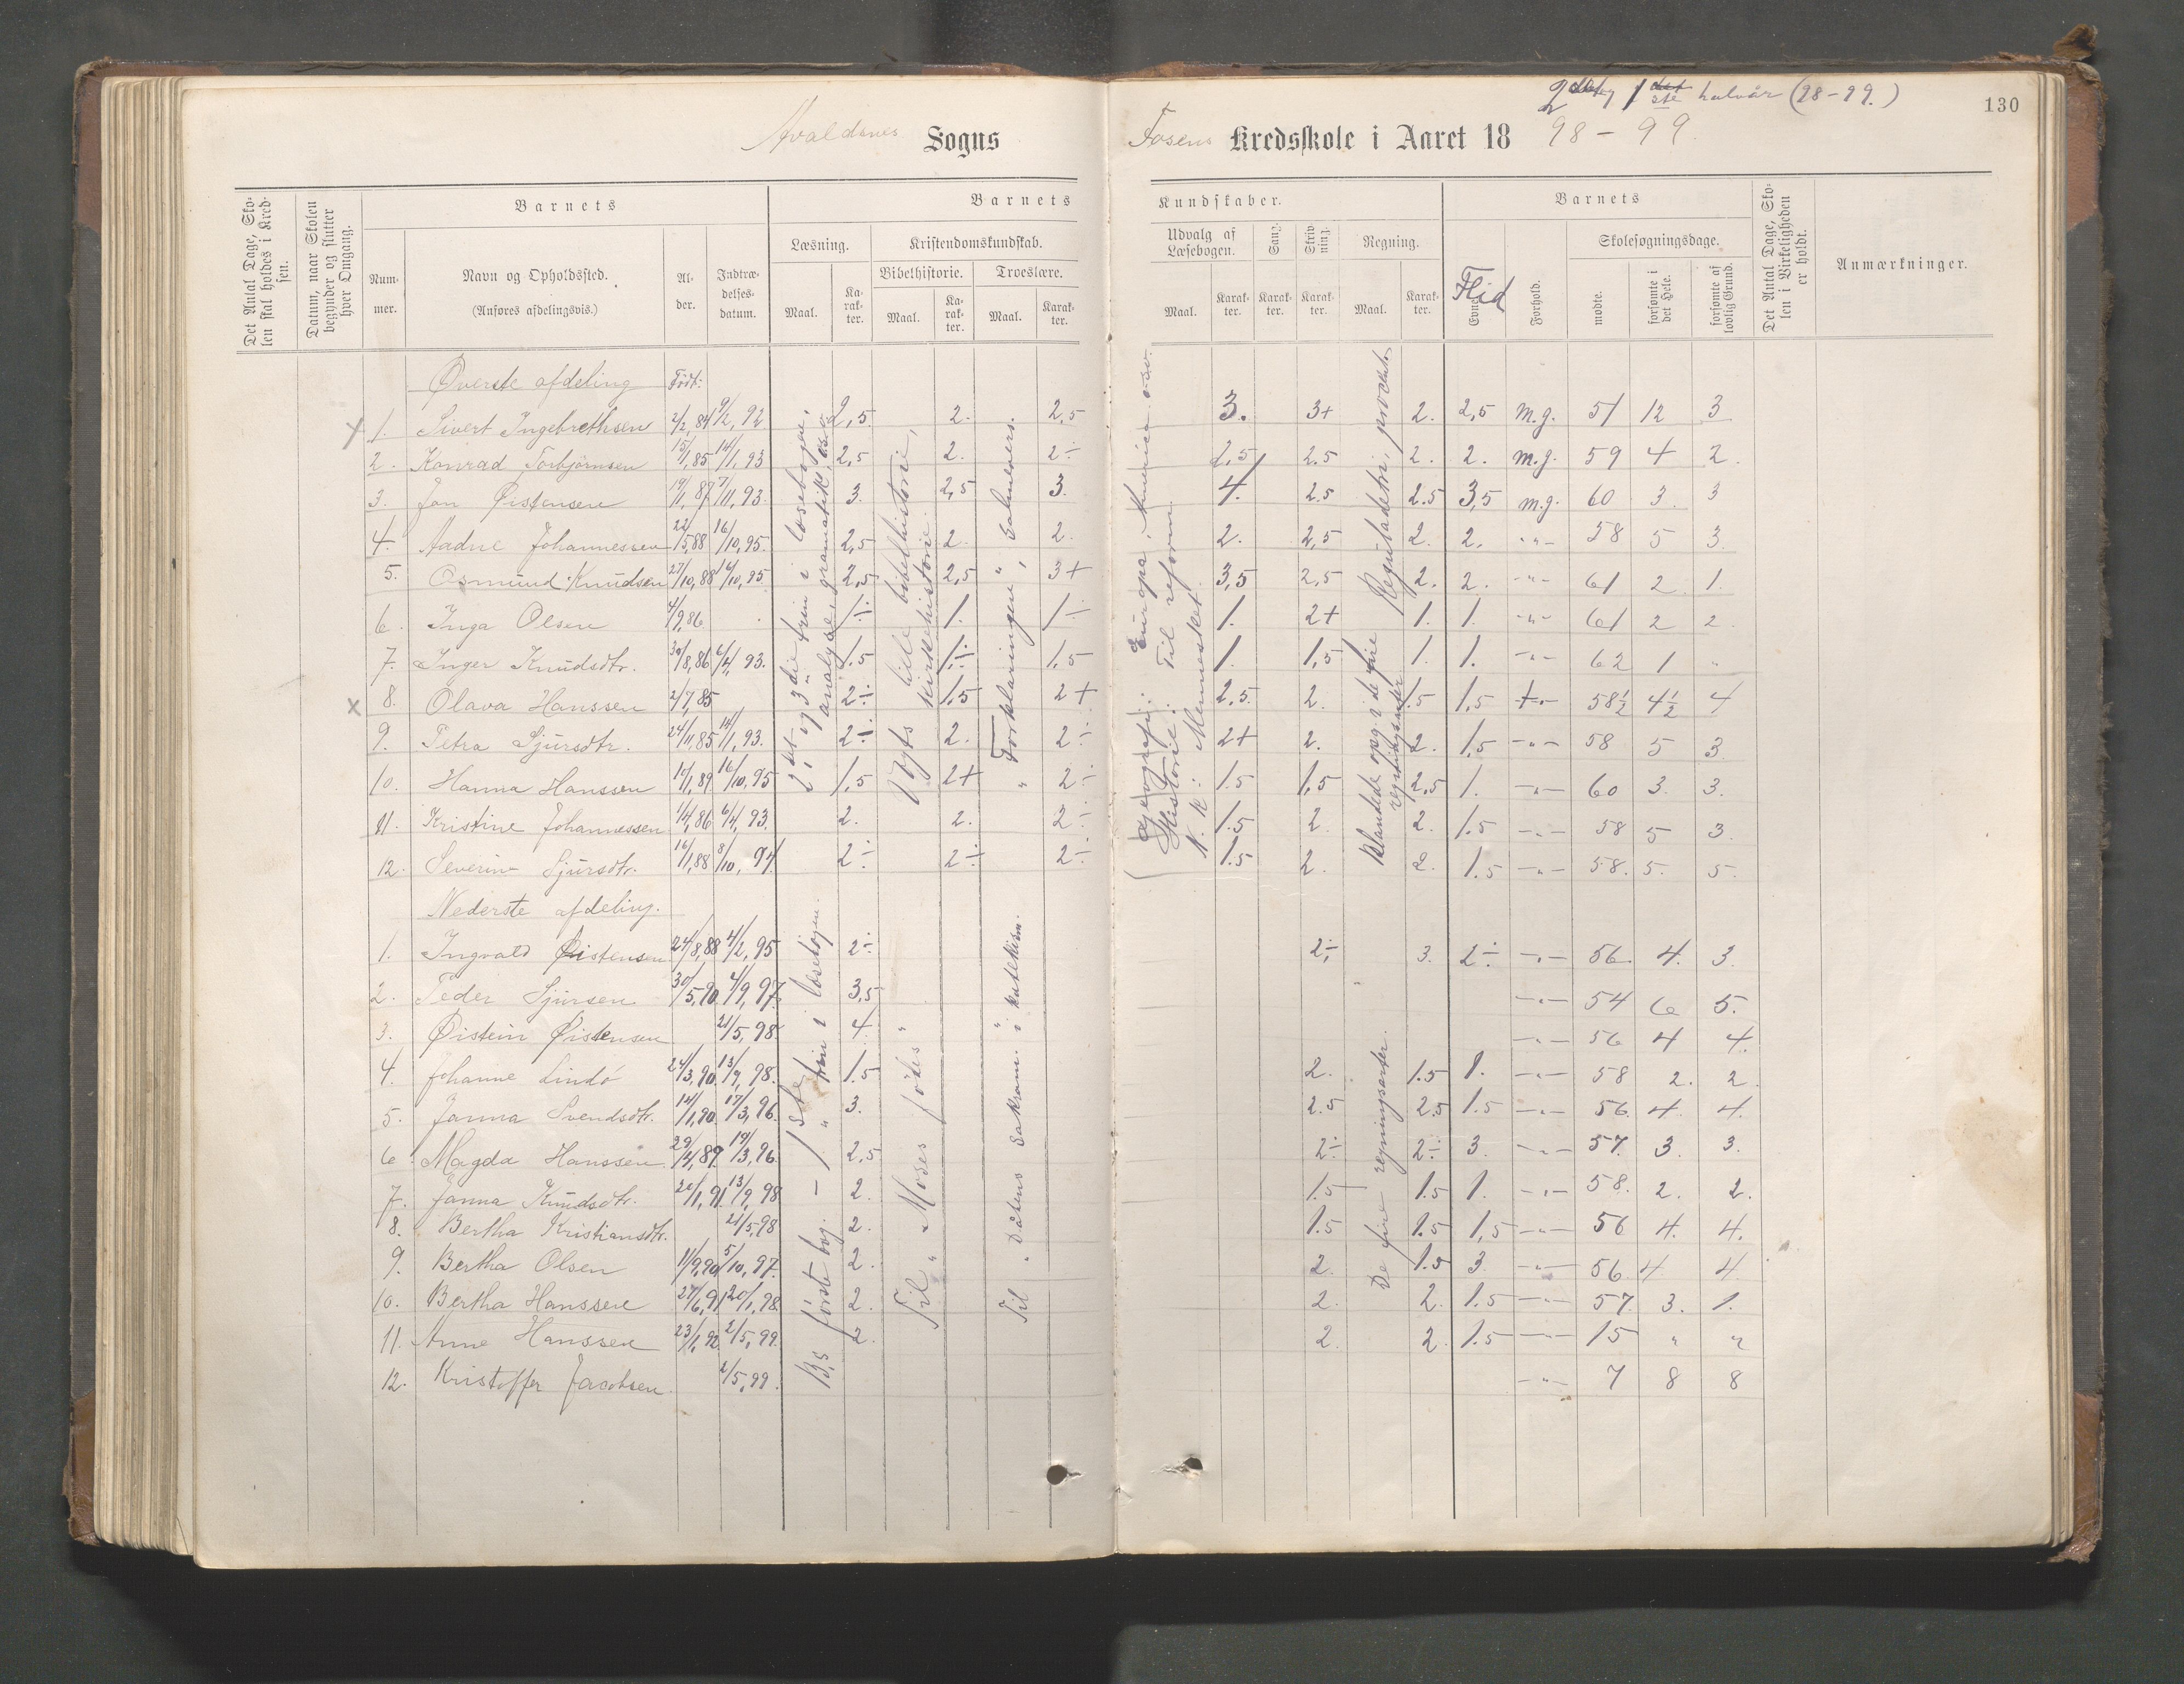 2det og 1ste halvår (98-99.)
130
Avaldsnes Sogns Fosens Kredsskole i Aaret 1898-99.
Det Antal Dage, Skolen skal holdes i Kredsen.
Datum, naar Skolen begynder og slutter hver Omgang.
Barnets
Nummer.
Navn og Opholdssted.
(Anføres afdelingsvis.)
Alder.
Indtrædelsesdatum.
Barnets Kundskaber.
Læsning.
Maal.
Karakter.
Kristendomskundskab.
Bibelhistorie.
Maal.
Karakter.
Troeslære.
Maal.
Karakter.
Udvalg af Læsebogen.
Maal.
Karakter.
Sang.
Karakter.
Skrivning.
Karakter.
Regning.
Maal.
Karakter.
Barnets
Evner.
Flid
Forhold.
Skolesøgningsdage.
mødte.
forsømte i det Hele.
forsømte af lovlig Grund.
Det Antal Dage, Skolen i Virkeligheden er holdt.
Anmærkninger.
Øverste afdeling Født:
X 1. Sivert Ingebrethsen 2/2, 84 9/2, 92 2,5. 2. 2,5 3. 3+ 2. 2,5 m.g. 51 12 3
2. Konrad Torbjörnsen 15/1, 85 14/1, 93 2,5 2. 2÷ 2,5 2.5 2. 2. m.g. 59 4 2.
3. Jan Øistensen 19/1, 87 7/11, 93. 3. 2,5 3. 4. 2.5 2.5 3,5 m.g. 60 3. 3
4. Aadne Johannessen 22/5, 88 16/10, 95. 2,5 2. 2. 2. 2,5 2. 2. -"- 58 5 3.
5. Osmund Knudsen 27/10, 88 16/10, 95 2,5 2,5 3+ 3,5 2,5 2. 2. -"- 61 2 1.
6. Inga Olsen 4/9, 86. 1÷ 1. 1÷ 1. 2+ 1. 1. -"- 61 2 2
7. Inger Knudsdtr. 30/8, 86 6/4, 93. 1.5 1.÷ 1,5 1. 1,5 1. 1. -"- 62 1 "
X 8. Olava Hanssen 2/7, 85 2÷ 1,5 2+ 2,5. 2. 1.5 1,5 -"- 58½ 4½ 4
9. Petra Sjursdtr. 24/11, 85 14/1, 93. 2÷ 2. 2÷ 2+ 2. 2. 1.5 -"- 58 5 3.
10. Hanna Hanssen 10/1, 89 16/10, 95 1,5 2+ 2÷ 1.5 1,5 2,5 1. -"- 60 3. 3.
11. Kristine Johannessen 1/4, 86 6/4, 93. 2. 2. 2÷ 1.5 2. 2. 1.5 -"- 58 5 3.
12. Severine Sjursdtr. 16/1, 88 8/10, 94. 2÷ 2÷ 2÷ 1.5 2. 2. 1.5 -"- 58. 5. 5.
2det og 3die trin i læsebogen,
analyse, gramatik, osv.
Vogts lille bibelhistorie,
kirkehistorie.
" Forklaringen ", Salmevers.
Geografi: Europa, Amerika osv.
Historie: Til reform.
N. K: Mennesket.
Blandede opg. i de fire
regningsarter
Reguladetri, procent
Nederste afdeling.
1. Ingvald Øistensen 24/8, 88 4/2, 95 2÷ 2÷ 3. 2÷ -"- 56. 4. 3.
2. Peder Sjursen 30/5, 90 4/9, 97. 3,5 -"- 54 6 5.
3. Øistein Øistensen 21/5, 98. 4. -"- 56 4 4.
4. Johanne Lindö 24/3, 90. 13/9, 98. 1.5 2. 1.5 1. -"- 58 2. 2
5. Janna Svendsdtr. 14/1, 90. 17/3, 96. 3. 2.5 2.5 1.5 -"- 56. 4. 4.
6. Magda Hanssen 29/4, 89. 19/3, 96. 2,5 2÷ 2÷ 3. -"- 57. 3. 3.
7. Janna Knudsdtr. 20/1, 91. 13/9, 98 2. 1.5 1.5 1. -"- 58. 2. 2.
8. Bertha Kristiansdtr. 21/5, 98 2. 1.5 1.5 1,5 -"- 56 4. 4.
9. Bertha Olsen 11/9, 90 5/10, 97. 2. 2. 1.5 3. -"- 56. 4 4
10. Bertha Hanssen 27/6, 91 20/1, 98. 2. 2. 2. 1.5 -"- 57. 3. 1.
11. Anne Hanssen 23/1, 92. 2/5, 99. 2. 2 2. 1.5 -"- 15 " "
12. Kristoffer Jacobsen. 2/5, 99. -"- 7 8 8
første bog. - 1ste trin i læsebogen.
Til " Moses fødes "
Til " Dåbens sakram. " i katekism.
De fire regningsarter.